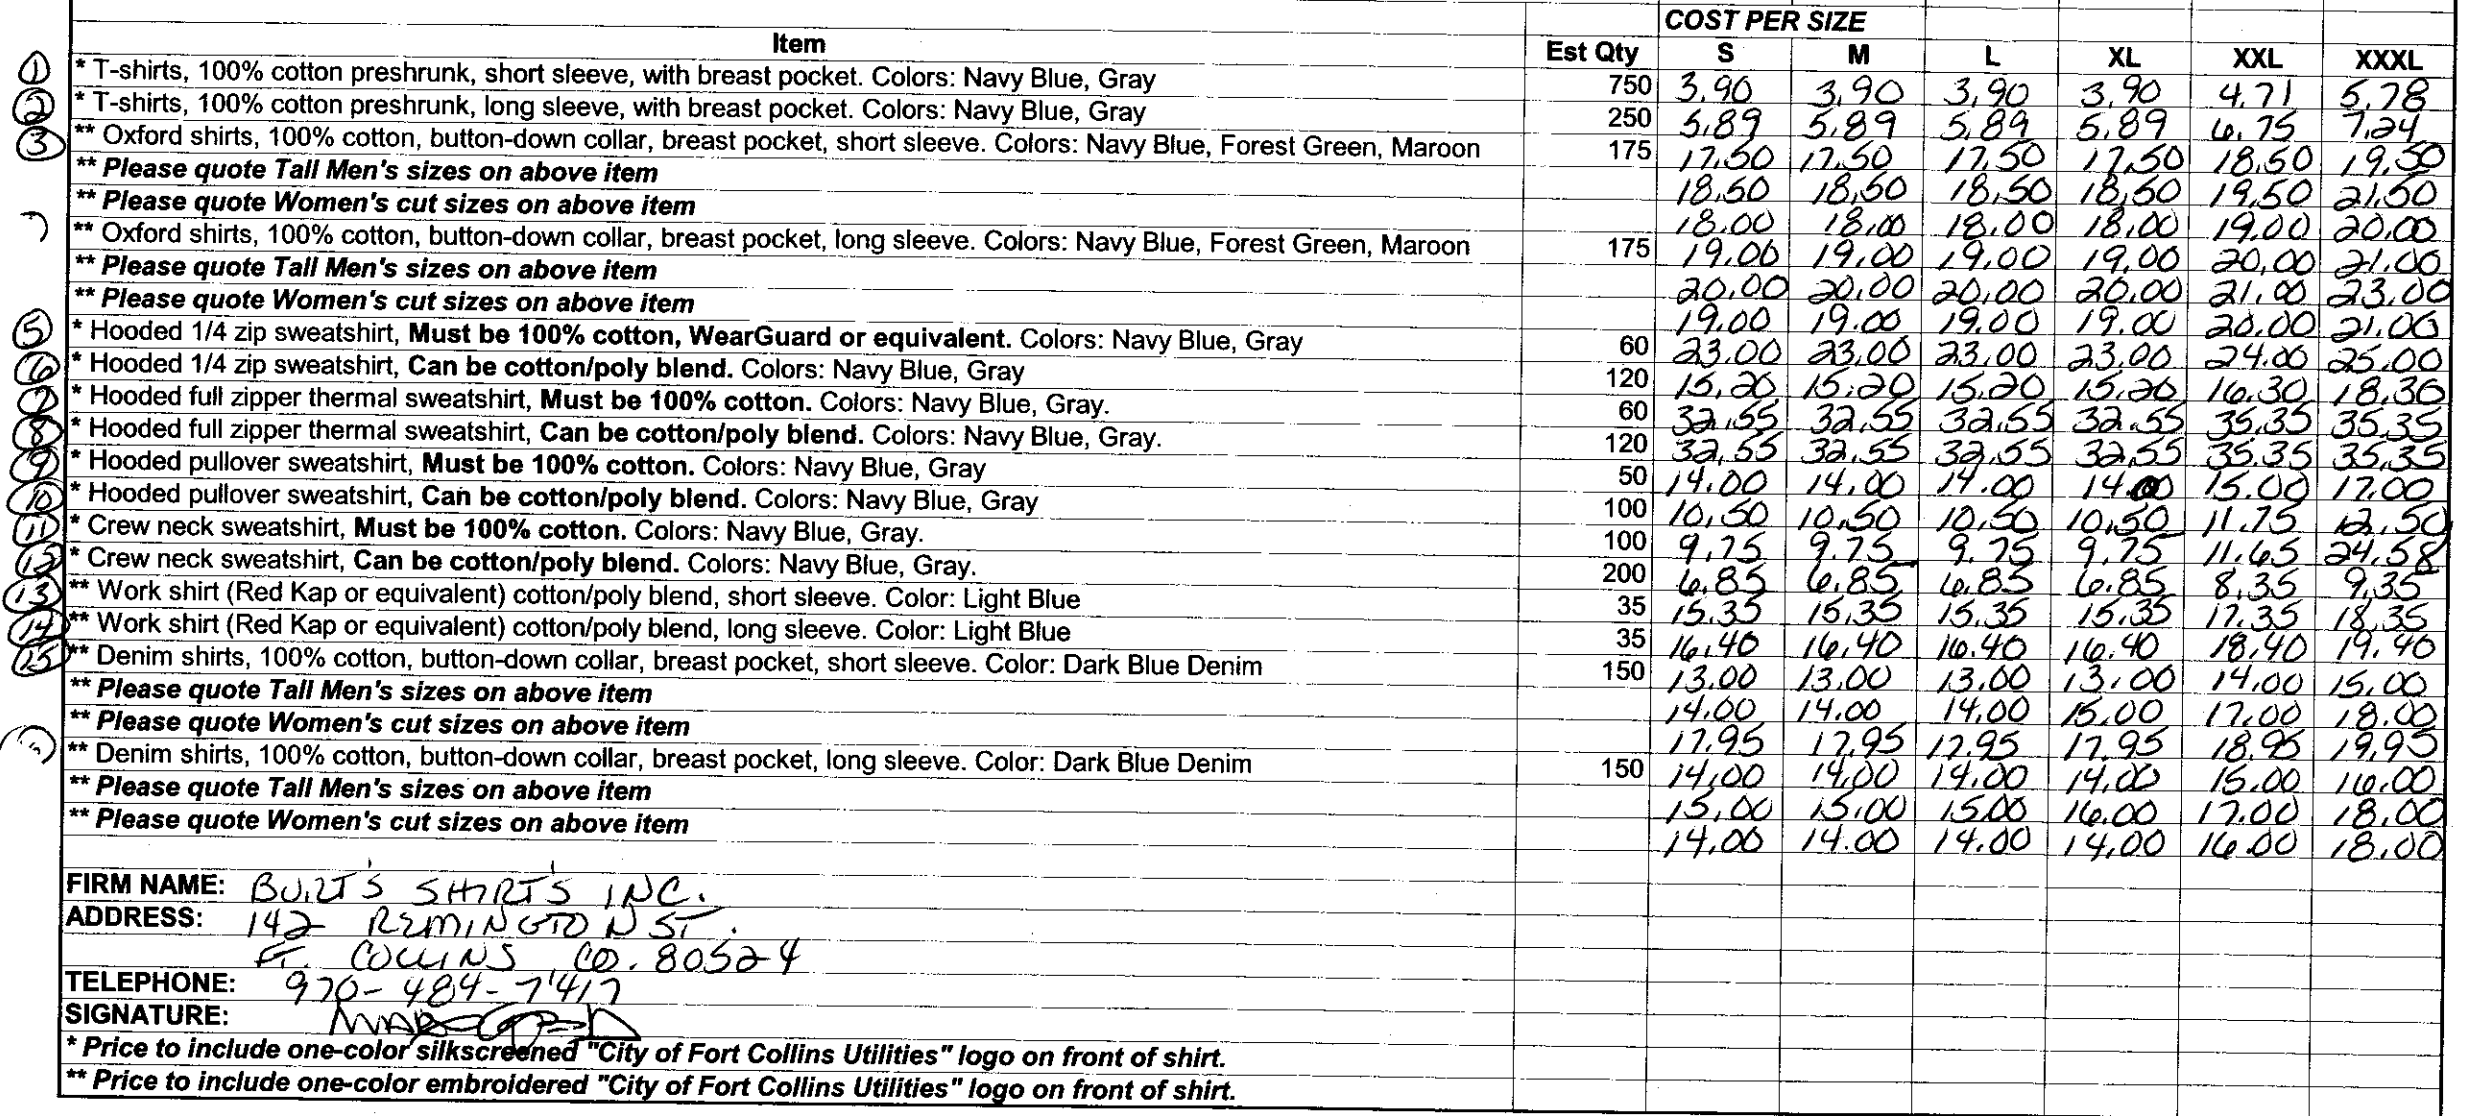 COST PER SIZE
Item Est Qty S M L XL XXL XXXL
1 * T-shirts, 100% cotton preshrunk, short sleeve, with breast pocket. Colors: Navy Blue, Gray 750 3.90 3.90 3.90 3.90 4.71 5.78
2 * T-shirts, 100% cotton preshrunk, long sleeve, with breast pocket. Colors: Navy Blue, Gray 250 5.89 5.89 5.89 5.89 6.75 7.24
3 ** Oxford shirts, 100% cotton, button-down collar, breast pocket, short sleeve. Colors: Navy Blue, Forest Green, Maroon 175 17.50 17.50 17.50 17.50 18.50 19.50
** Please quote Tall Men's sizes on above item 18.50 18.50 18.50 18.50 19.50 21.50
** Please quote Women's cut sizes on above item 18.00 18.00 18.00 18.00 19.00 20.00
** Oxford shirts, 100% cotton, button-down collar, breast pocket, long sleeve. Colors: Navy Blue, Forest Green, Maroon 175 19.00 19.00 19.00 19.00 20.00 21.00
** Please quote Tall Men's sizes on above item 20.00 20.00 20.00 20.00 21.00 23.00
** Please quote Women's cut sizes on above item 19.00 19.00 19.00 19.00 20.00 21.00
5 * Hooded 1/4 zip sweatshirt, Must be 100% cotton, WearGuard or equivalent. Colors: Navy Blue, Gray 60 23.00 23.00 23.00 23.00 24.00 25.00
6 * Hooded 1/4 zip sweatshirt, Can be cotton/poly blend. Colors: Navy Blue, Gray 120 15.20 15.20 15.20 15.20 16.30 18.30
7 * Hooded full zipper thermal sweatshirt, Must be 100% cotton. Colors: Navy Blue, Gray. 60 32.55 32.55 32.55 32.55 35.35 35.35
8 * Hooded full zipper thermal sweatshirt, Can be cotton/poly blend. Colors: Navy Blue, Gray. 120 32.55 32.55 32.55 32.55 35.35 35.35
9 * Hooded pullover sweatshirt, Must be 100% cotton. Colors: Navy Blue, Gray 50 14.00 14.00 14.00 14.00 15.00 17.00
10 * Hooded pullover sweatshirt, Can be cotton/poly blend. Colors: Navy Blue, Gray 100 10.50 10.50 10.50 10.50 11.75 12.50
11 * Crew neck sweatshirt, Must be 100% cotton. Colors: Navy Blue, Gray. 100 9.75 9.75 9.75 9.75 11.65 24.58
12 * Crew neck sweatshirt, Can be cotton/poly blend. Colors: Navy Blue, Gray. 200 6.85 6.85 6.85 6.85 8.35 9.35
13 ** Work shirt (Red Kap or equivalent) cotton/poly blend, short sleeve. Color: Light Blue 35 15.35 15.35 15.35 15.35 17.35 18.35
14 ** Work shirt (Red Kap or equivalent) cotton/poly blend, long sleeve. Color: Light Blue 35 16.40 16.40 16.40 16.40 18.40 19.40
15 ** Denim shirts, 100% cotton, button-down collar, breast pocket, short sleeve. Color: Dark Blue Denim 150 13.00 13.00 13.00 13.00 14.00 15.00
** Please quote Tall Men's sizes on above item 14.00 14.00 14.00 15.00 17.00 18.00
** Please quote Women's cut sizes on above item 17.95 17.95 17.95 17.95 18.95 19.95
** Denim shirts, 100% cotton, button-down collar, breast pocket, long sleeve. Color: Dark Blue Denim 150 14.00 14.00 14.00 14.00 15.00 16.00
** Please quote Tall Men's sizes on above item 15.00 15.00 15.00 16.00 17.00 18.00
** Please quote Women's cut sizes on above item 14.00 14.00 14.00 14.00 16.00 18.00
FIRM NAME: BURT'S SHIRTS INC.
ADDRESS: 142 REMINGTON ST.
FT. COLLINS CO. 80524
TELEPHONE: 970-484-7417
SIGNATURE:
* Price to include one-color silkscreened "City of Fort Collins Utilities" logo on front of shirt.
** Price to include one-color embroidered "City of Fort Collins Utilities" logo on front of shirt.